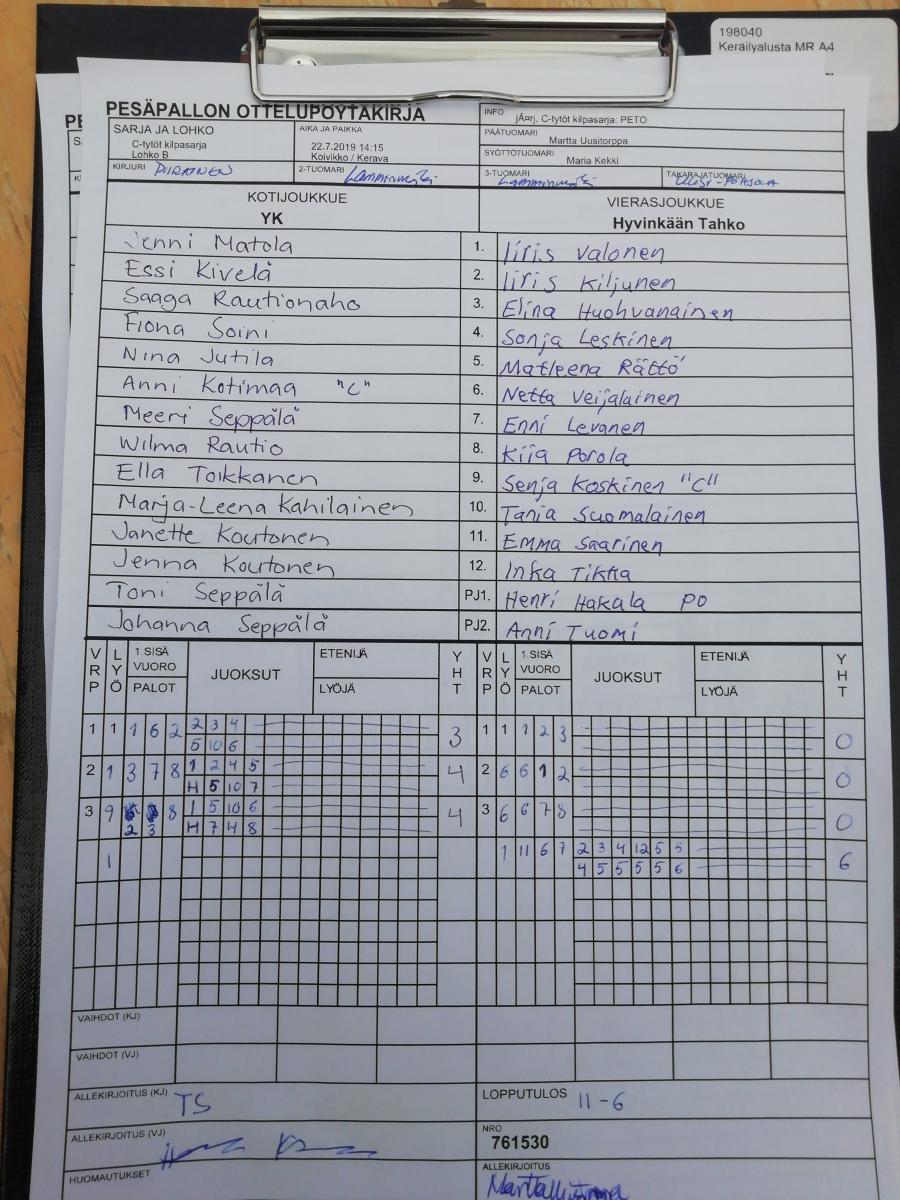 198040
Keräilyalusta MR A4
PE
PESÄPALLON OTTELUPÖYTÄKIRJA
INFO jÃ¤rj. C-tytöt kilpasarja: PETO
SARJA JA LOHKO
C-tytöt kilpasarja
Lohko B
AIKA JA PAIKKA
22.7.2019 14:15
Koivikko / Kerava
PÄÄTUOMARI
Martta Uusitorppa
SYÖTTÖTUOMARI
Maria Kekki
KIRJURI PIIRAINEN
2-TUOMARI
3-TUOMARI
TAKARAJATUOMARI
KOTIJOUKKUE
YK
VIERASJOUKKUE
Hyvinkään Tahko
Jenni Matola 1. Iiris Valonen
Essi Kivelä 2. Iiris Kiljunen
Saaga Rautionaho 3. Elina Huohvanainen
Fiona Soini 4. Sonja Leskinen
Nina Jutila 5. Matleena Rättö
Anni Kotimaa "C" 6. Netta Veijalainen
Meeri Seppälä 7. Enni Levanen
Wilma Rautio 8. Kiia Porola
Ella Toikkanen 9. Senja Koskinen "C"
Marja-Leena Kahilainen 10. Tania Suomalainen
Janette Koutonen 11. Emma Saarinen
Jenna Koutonen 12. Inka Tikka
Toni Seppälä PJ1. Henri Hakala PO
Johanna Seppälä PJ2. Anni Tuomi
VRP LYÖ 1.SISÄ VUORO PALOT JUOKSUT ETENIJÄ LYÖJÄ YHT VRP LYÖ 1.SISÄ VUORO PALOT JUOKSUT ETENIJÄ LYÖJÄ YHT
1 1 1 6 2 2 3 4 3 1 1 1 2 3 0
5 10 6
2 1 3 7 8 1 2 4 5 4 2 6 6 1 2 0
H 5 10 7
3 9 8 1 5 10 6 4 3 6 6 7 8 0
2 3 H 7 H 8
1 1 11 6 7 2 3 4 12 5 5 6
4 5 5 5 5 6
VAIHDOT (KJ)
VAIHDOT (VJ)
ALLEKIRJOITUS (KJ) TS
LOPPUTULOS 11-6
ALLEKIRJOITUS (VJ)
NRO
761530
HUOMAUTUKSET
ALLEKIRJOITUS